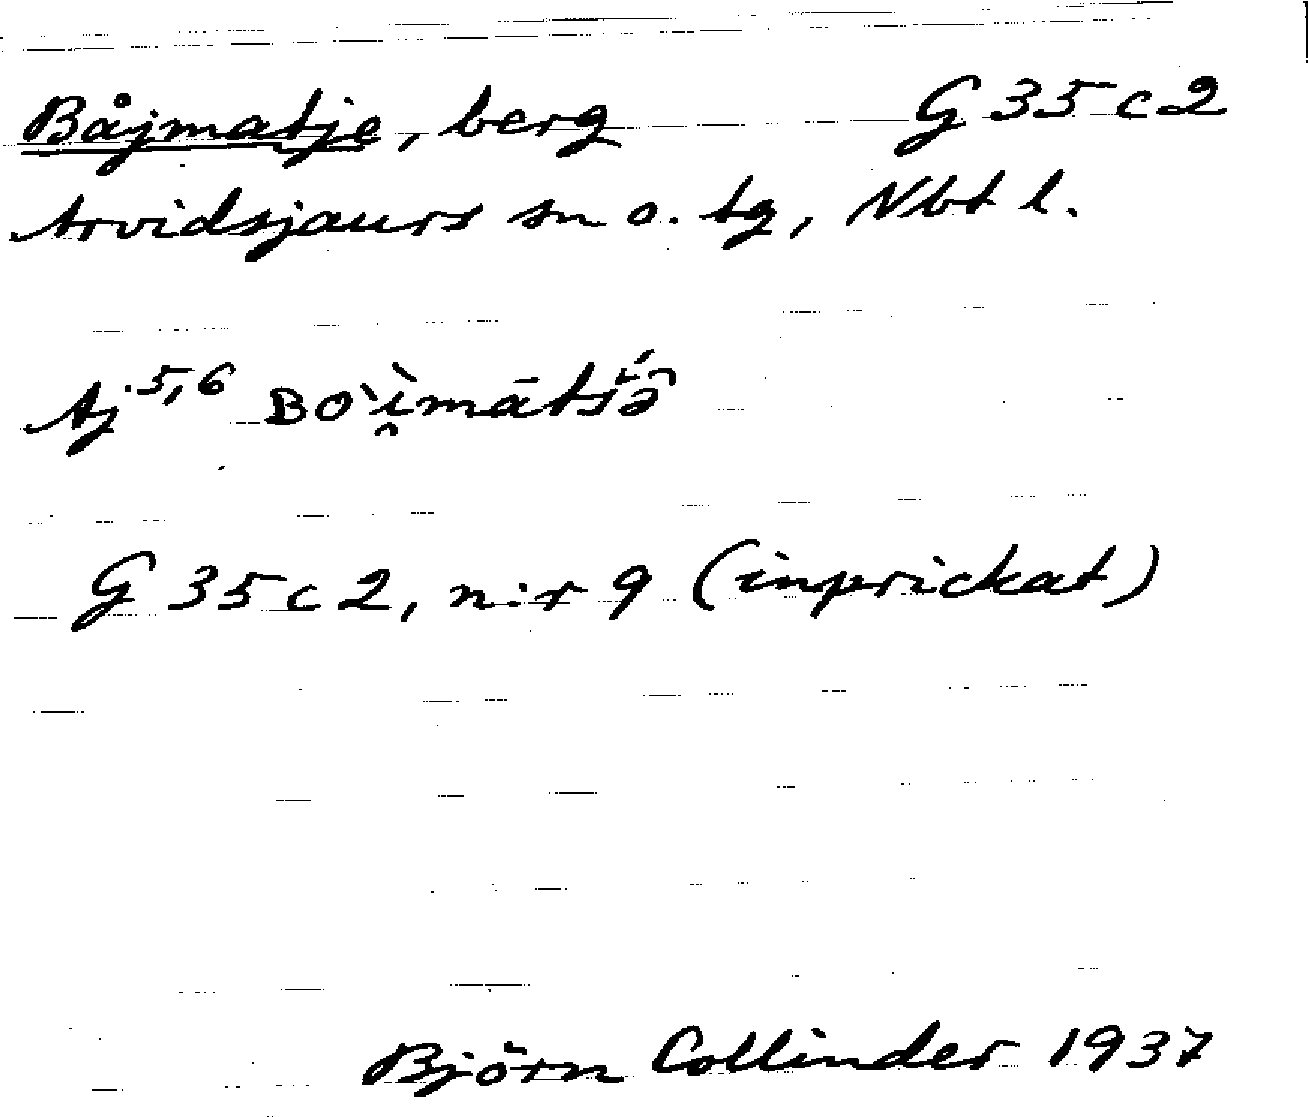 Båjmatje, berg G 35 c 2
Arvidsjaurs sn o. tg, Nbt l.
Aj 5,6
G 35 c 2, n:r 9 (inprickat)
Björn Collinder 1937